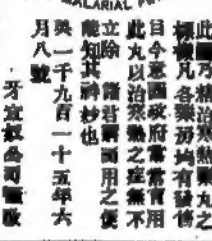 MALARIAL
此圖乃精治寒熱癥丸之
標樣凡各藥房均有發售
目今意國政府常常官用
此丸以治寒熱之症無不
立除 諸君賣而用之便
能知其神妙也
與一千九百一十五年六
月八號
牙宜奴公司謹啟